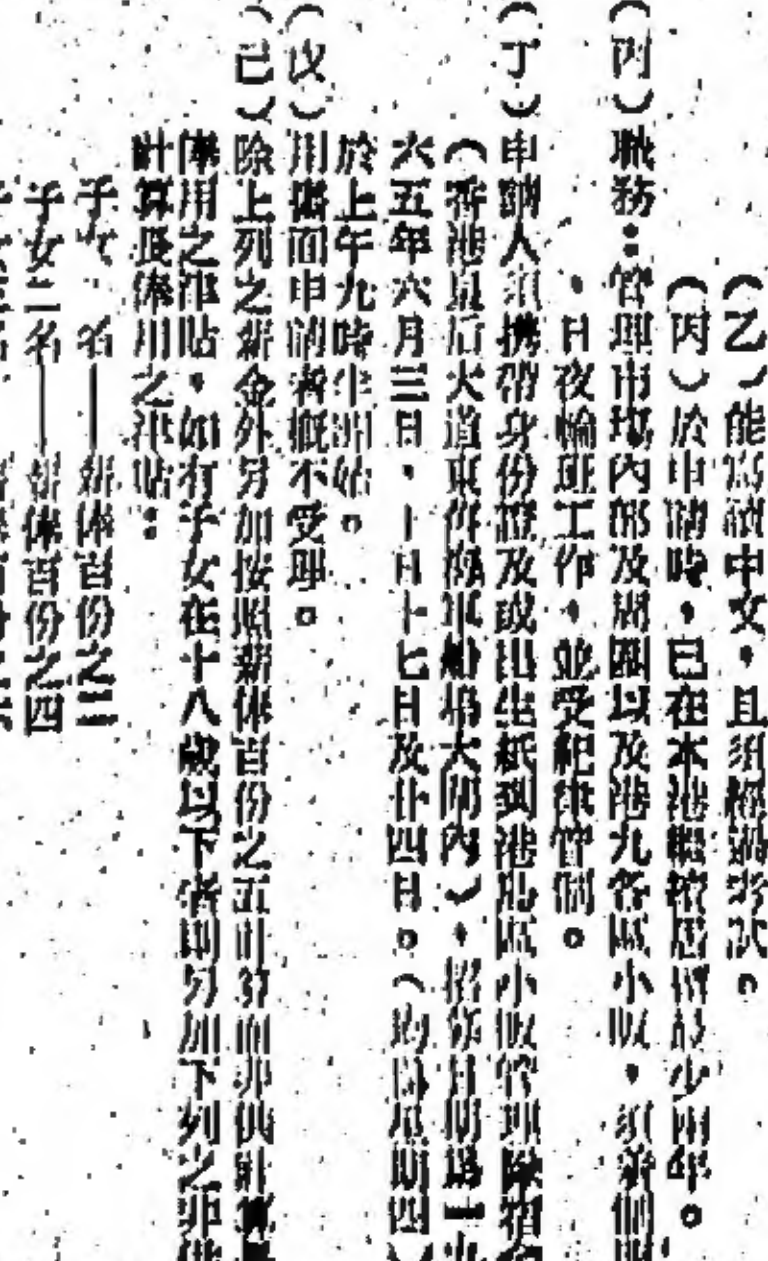 (乙)能寫讀中文,且須經過考試。
(丙)於申請時,已在本港繼續居留最少兩年。
(丙)職務:管理市場內部及周圍以及港九各區小販,須穿制服
,日夜輪班工作,並受紀律管制。
(丁)申請人須携帶身份證及或出生紙到港島區小販管理隊宿
(香港皇后大道東併海軍船塢大閘內),招募日期為一九
六五年六月三日,十日十七日及廿四日。(均為星期四)
於上午九時半開始。
(戊)用書面申請者概不受理。
(己)除上列之薪金外另加按照薪俸百份之五計算而非供計算長
俸用之津貼,如有子女在十八歲以下者則另加下列之非供
計算長俸用之津貼:
子女 名——薪俸百份之二
子女二名——薪俸百份之四